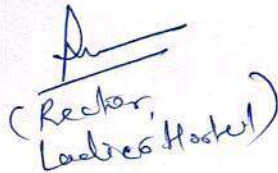 (Rector,
Ladies Hostel)